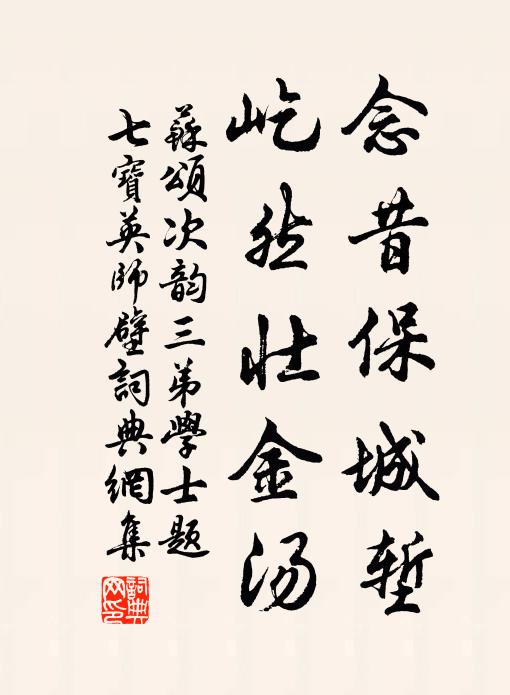 念昔保城堑
屹然壮金汤
蘇頌次韵三弟學士题
七寶英師壁詞典網集
詞典网印